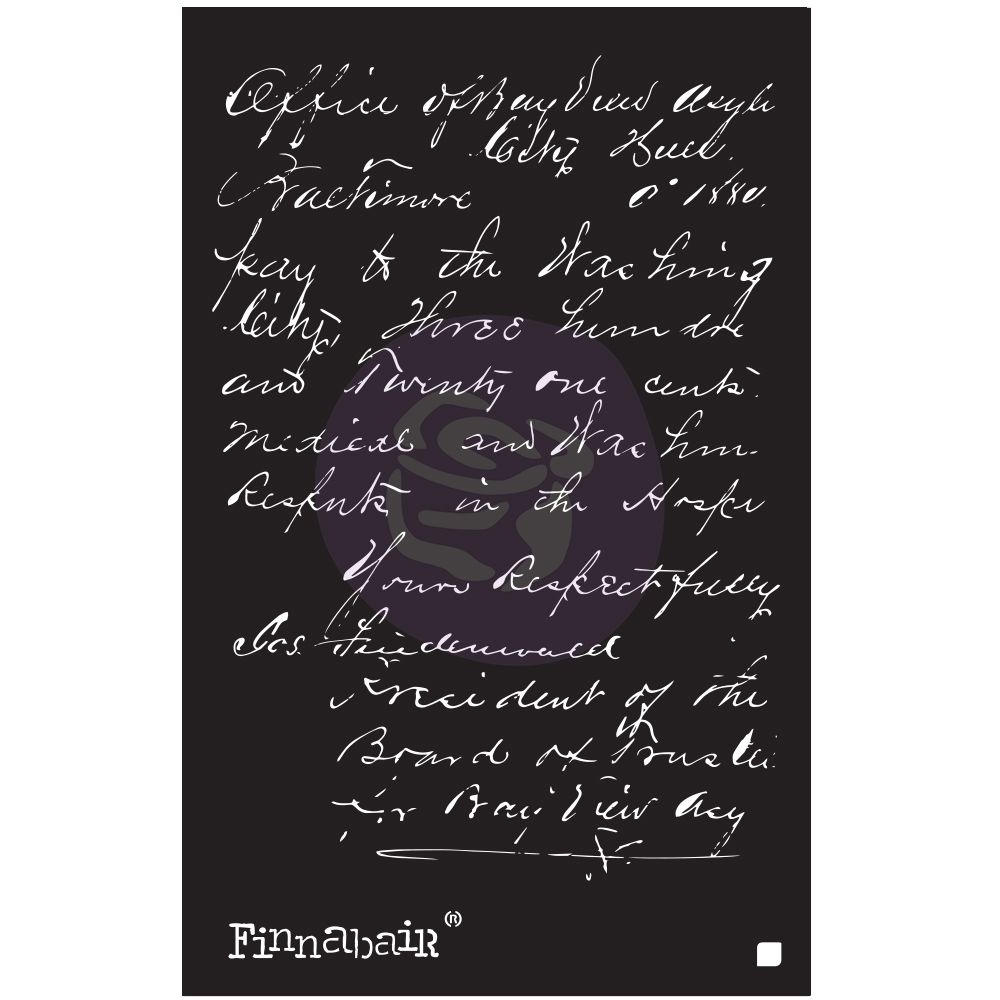 Office of Bay View Asylu
City Buil.
Baltimore 6° 1880.
pay to the Washing
City, Three hundre
and Twenty One cents.
Medical and Washin.
Respects in the Hospi
Yours Respectfully
Jos. Friedenwald
President of the
Board of Trustee
for Bay View Asy
Finnabair®